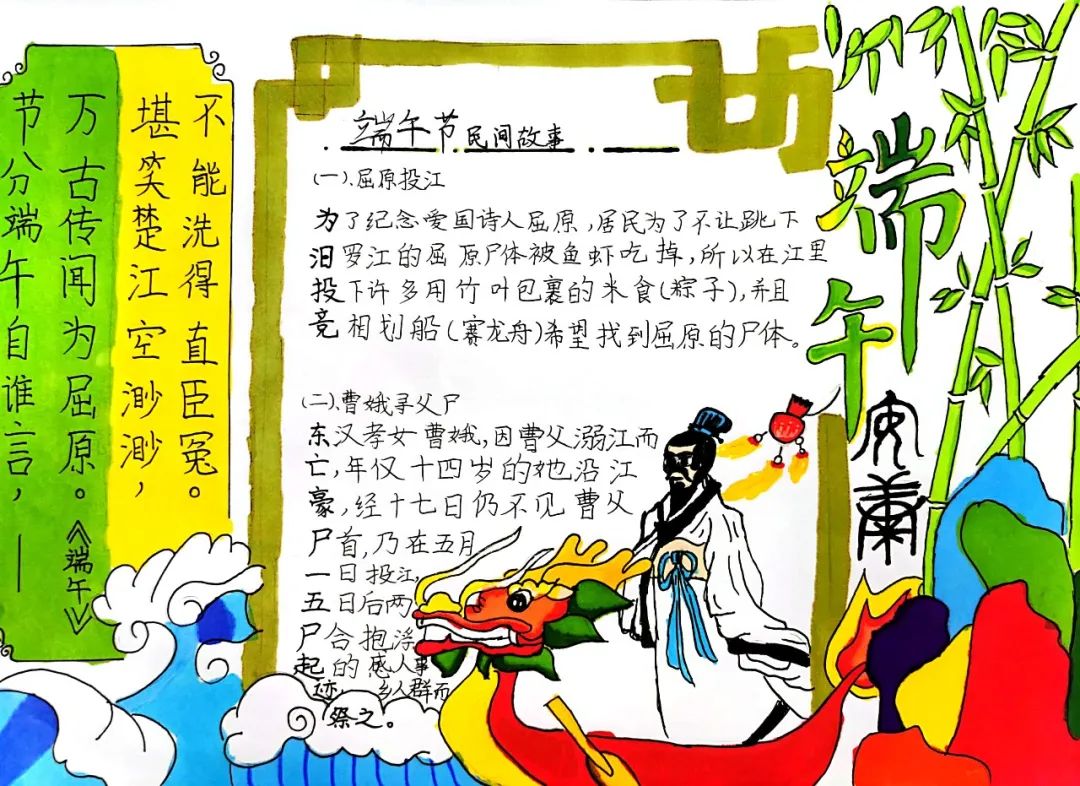 节分端午自谁言，——
万古传闻为屈原。《端午》
堪笑楚江空渺渺，
不能洗得直臣冤。
端午节民间故事
(一)、屈原投江
为了纪念爱国诗人屈原，居民为了不让跳下
汨罗江的屈原尸体被鱼虾吃掉，所以在江里
投下许多用竹叶包裹的米食(粽子)，并且
竞相划船(赛龙舟)希望找到屈原的尸体。
(二)、曹娥寻父尸
东汉孝女曹娥，因曹父溺江而
亡，年仅十四岁的她沿江
豪，经十七日仍不见曹父
尸首，乃在五月
一日投江，
五日后两
尸合抱浮
起的感人事
迹，乡人群而
祭之。
端午
安康